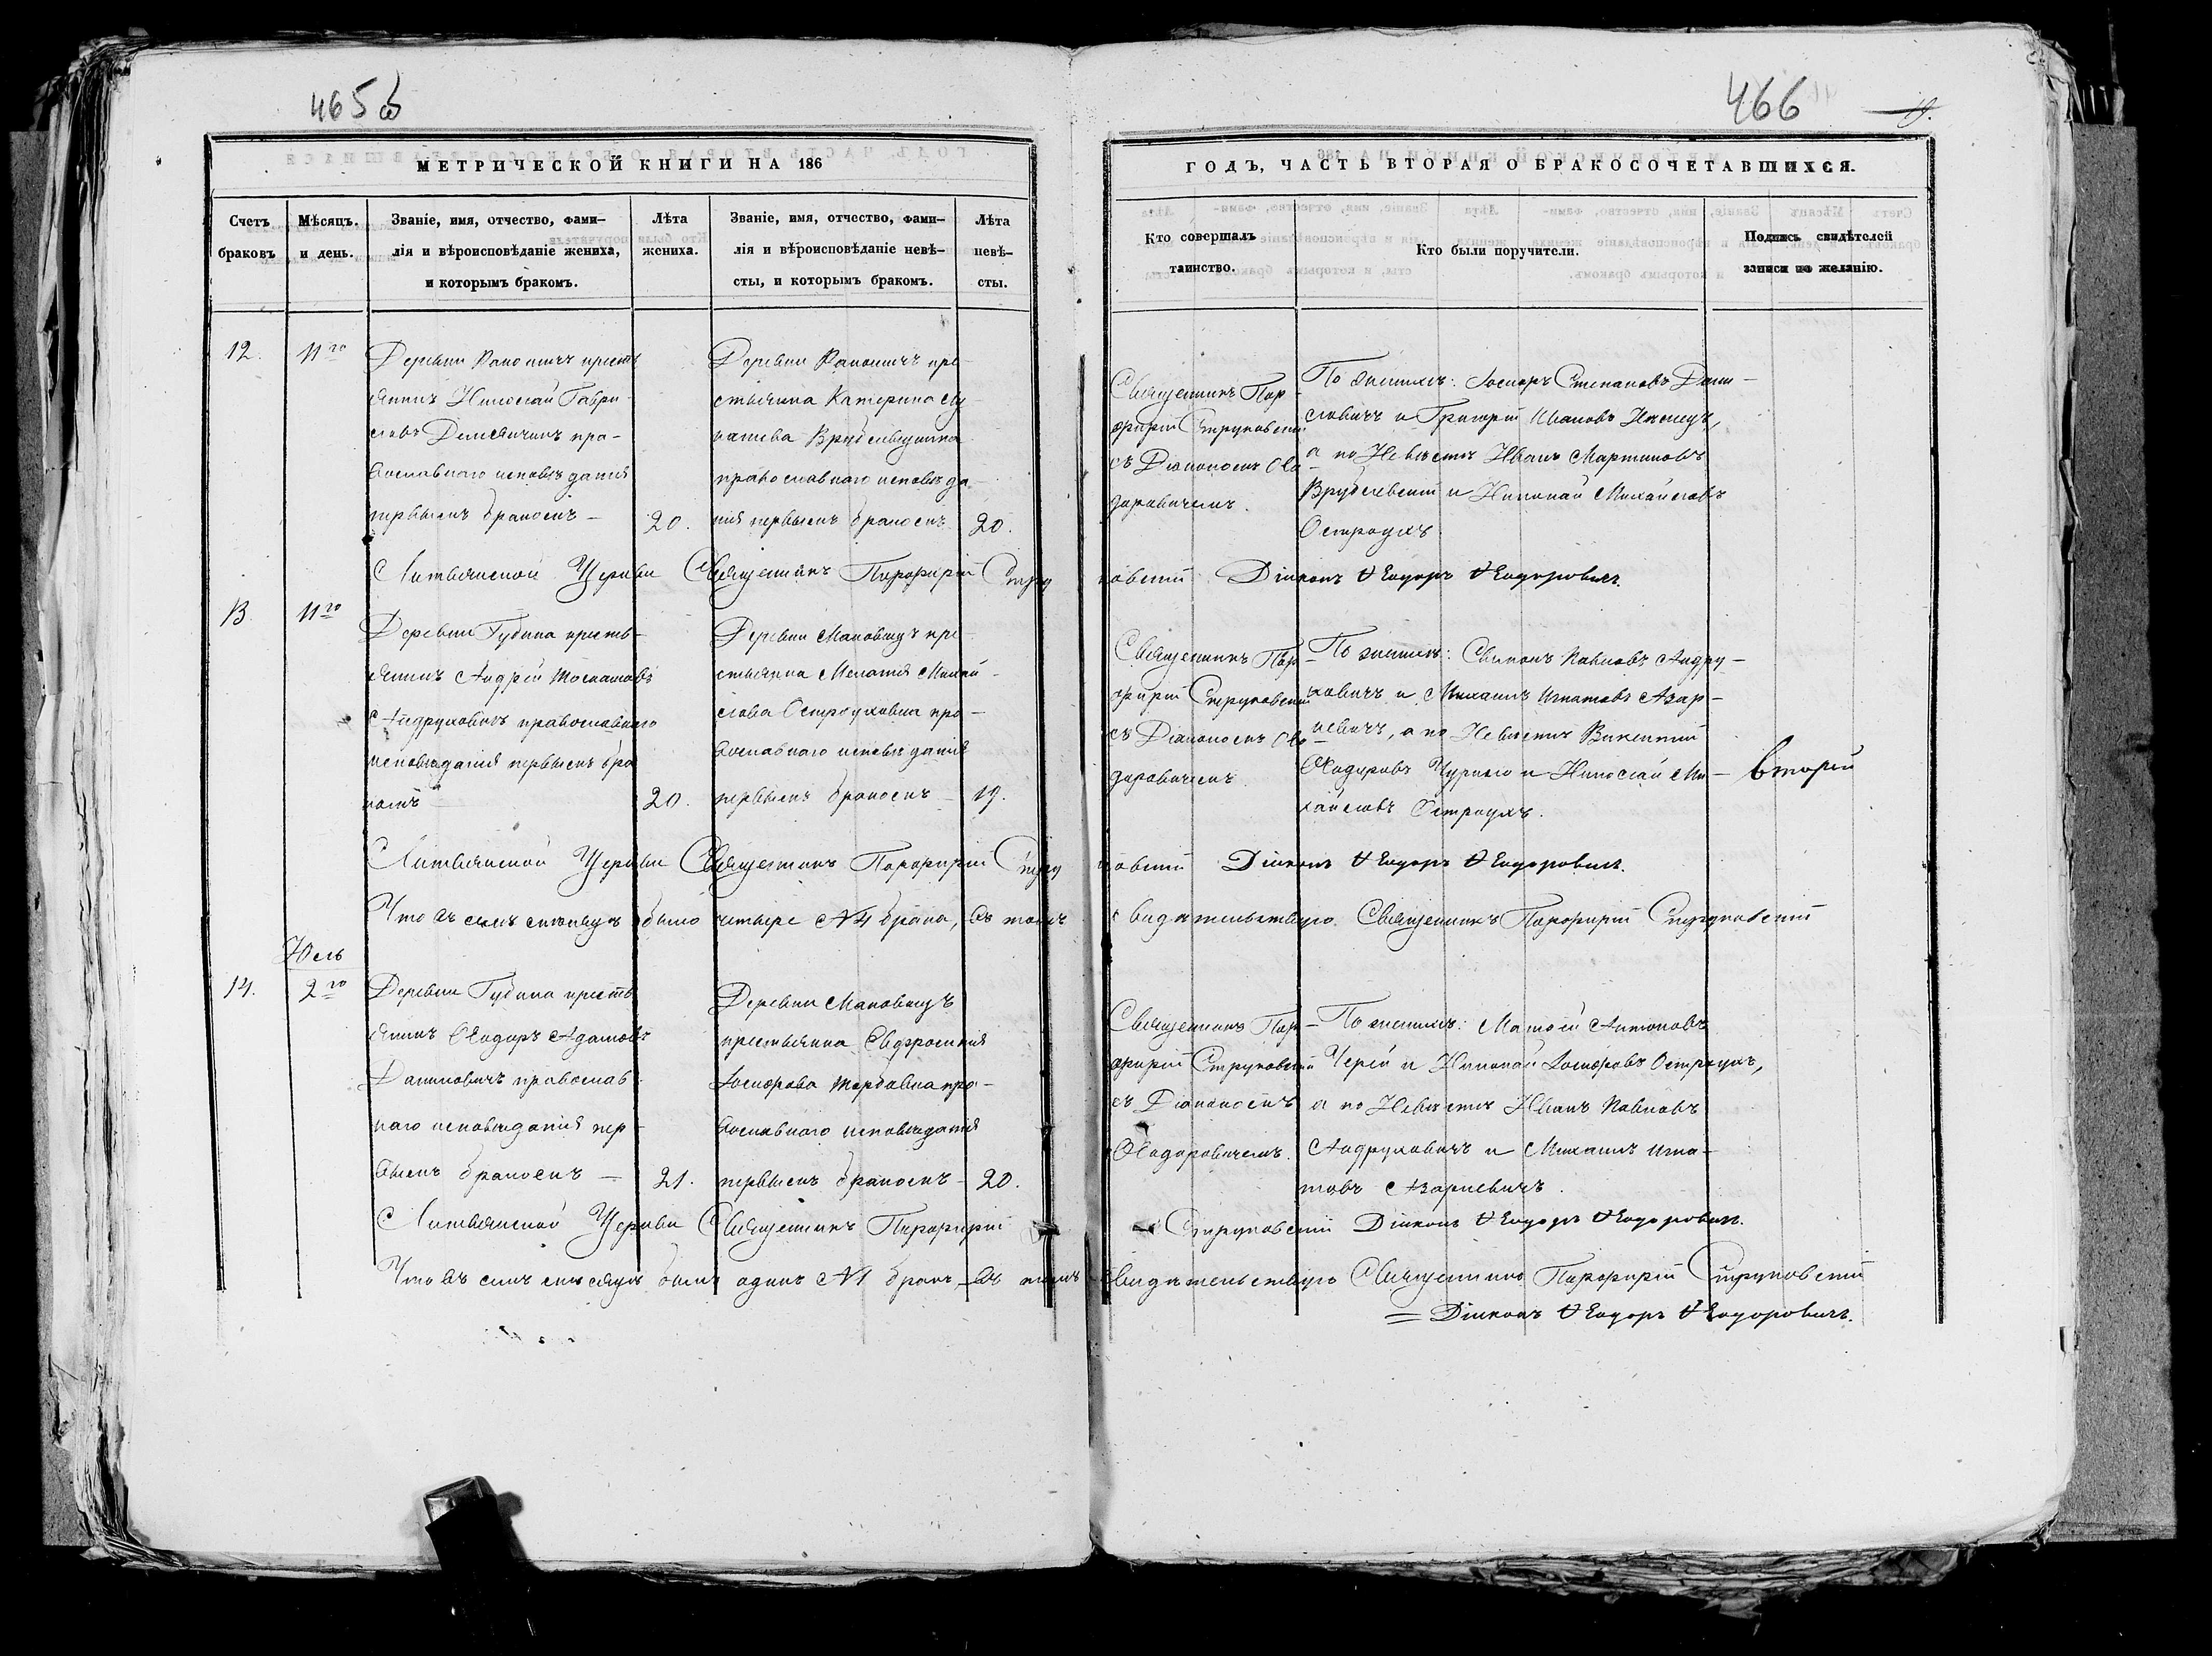 465 об
466
19.
МЕТРИЧЕСКОЙ КНИГИ НА 186
ГОДЪ, ЧАСТЬ ВТОРАЯ О БРАКОСОЧЕТАВШИХСЯ.
Счетъ браковъ
Мѣсяцъ. и день.
Званіе, имя, отчество, фами-
лія и вѣроисповѣданіе жениха,
и которымъ бракомъ.
Лѣта
жениха.
Званіе, имя, отчество, фами-
лія и вѣроисповѣданіе невѣ-
сты, и которымъ бракомъ.
Лѣта
невѣ-
сты.
Кто совершалъ
таинство.
Кто были поручители.
Подпись свидѣтелей
записи по желанію.
12.
11го
Деревни кресть
янинъ Николай Гаври
ловъ пра-
вославнаго исповѣданія
первымъ бракомъ —
20.
Деревни кре
стьянка Катерина
православнаго исповѣда
нія первымъ бракомъ
20.
Священникъ Пор
фирій Струковскій
съ Діакономъ Ѳео
доровичемъ.
По женихѣ: Іосифъ Степановъ Дани-
ловичъ и Григорій Ивановъ
а по Невѣстѣ Иванъ Мартиновъ
Врублевскій и Николай Михайловъ
Остроухъ
Литвянской Церкви Священникъ Порфирій Струковскій Діаконъ Ѳеодоръ Ѳеодоровичъ.
13
11го
Деревни Губина кресть-
янинъ Андрей Игнатовъ
Андруховичъ православнаго
исповѣданія первымъ бра
комъ
20.
Деревни Маковищъ кре
стьянка Меланія Михай-
лова Остроуховна пра-
вославнаго исповѣданія
первымъ бракомъ
19.
Священникъ Пор-
фирій Струковскій
съ Діакономъ Ѳео
доровичемъ
По женихѣ: Симонъ Павловъ Андру-
ховичъ и Михаилъ Игнатовъ Азар-
кевичъ, а по Невѣстѣ Викентій
Ѳеодоровъ и Николай Ми-
хайловъ Остроухъ.
второй
Литвянской Церкви Священникъ Порфирій Струковскій Діаконъ Ѳеодоръ Ѳеодоровичъ.
Что въ семъ мѣсяцѣ было четыре №4 брака, въ томъ свидѣтельствую Священникъ Порфирій Струковскій
Юль
14.
2го
Деревни Губина кресть
янинъ Ѳеодоръ Адамовъ
Даниловичъ православ
наго исповѣданія пер-
вымъ бракомъ —
21.
Деревни Маковищъ
крестьянка Евфросинія
Іосифова пра-
вославнаго исповѣданія
первымъ бракомъ —
20.
Священникъ Пор-
фирій Струковскій
съ Діакономъ
Ѳеодоровичемъ.
По женихѣ: Матѳей Антоновъ
Черей и Николай Іосифовъ Остроухъ,
а по Невѣстѣ Иванъ Павловъ
Андруховичъ и Михаилъ Игна-
товъ Азаркевичъ.
Литвянской Церкви Священникъ Порфирій Струковскій Діаконъ Ѳеодоръ Ѳеодоровичъ.
Что въ семъ мѣсяцѣ былъ одинъ №1 бракъ, въ томъ свидѣтельствую Священникъ Порфирій Струковскій
= Діаконъ Ѳеодоръ Ѳеодоровичъ.